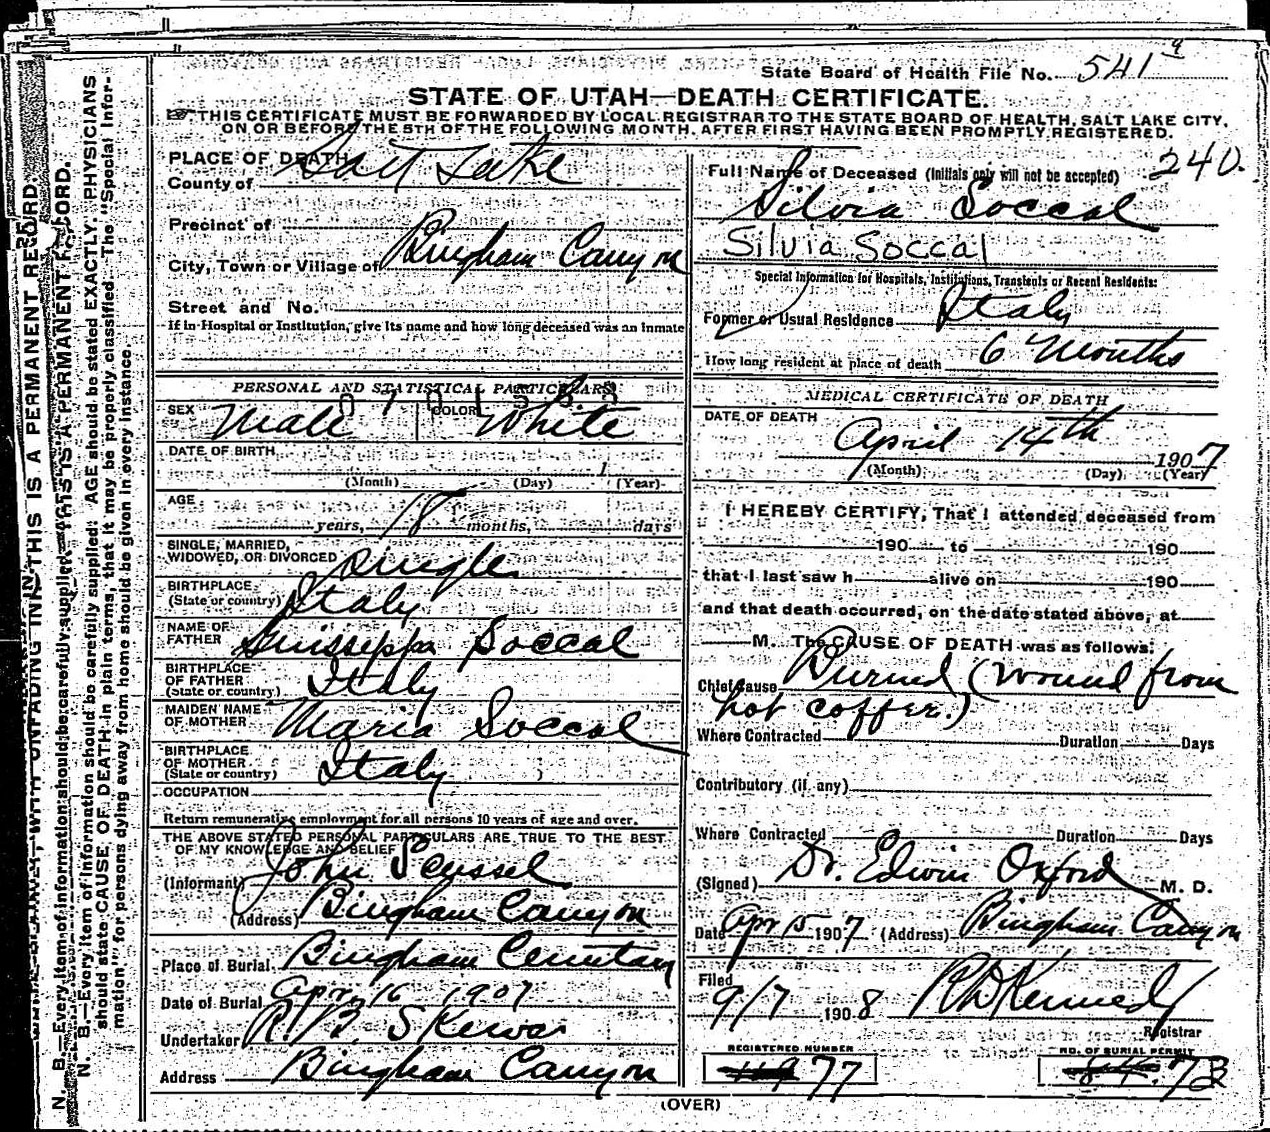 State Board of Health File No. 541 a
STATE OF UTAH—DEATH CERTIFICATE.
THIS CERTIFICATE MUST BE FORWARDED BY LOCAL REGISTRAR TO THE STATE BOARD OF HEALTH, SALT LAKE CITY,
ON OR BEFORE THE 5TH OF THE FOLLOWING MONTH, AFTER FIRST HAVING BEEN PROMPTLY REGISTERED.
240.
PLACE OF DEATH
County of Salt Lake
Precinct of
City, Town or Village of Bingham Canyon
Street and No.
If in Hospital or Institution, give its name and how long deceased was an inmate
PERSONAL AND STATISTICAL PARTICULARS
SEX Male COLOR White
DATE OF BIRTH
(Month) (Day) (Year)
AGE
years, 18 months, days
SINGLE, MARRIED,
WIDOWED, OR DIVORCED Single
BIRTHPLACE
(State or country) Italy
NAME OF
FATHER Guisseppa Soccal
BIRTHPLACE
OF FATHER
(State or country) Italy
MAIDEN NAME
OF MOTHER Maria Soccal
BIRTHPLACE
OF MOTHER
(State or country) Italy
OCCUPATION
Return remunerative employment for all persons 10 years of age and over.
THE ABOVE STATED PERSONAL PARTICULARS ARE TRUE TO THE BEST
OF MY KNOWLEDGE AND BELIEF
(Informant) John Scussel
(Address) Bingham Canyon
Place of Burial Bingham Cemetary
Date of Burial Apr 16 1907
Undertaker R.B. 
Address Bingham Canyon
Full Name of Deceased (Initials only will not be accepted)
Silvia Soccal
Silvia Soccal
Special Information for Hospitals, Institutions, Transients or Recent Residents:
Former or Usual Residence Italy
How long resident at place of death 6 Months
MEDICAL CERTIFICATE OF DEATH
DATE OF DEATH
April 14th 1907
(Month) (Day) (Year)
I HEREBY CERTIFY, That I attended deceased from
190 to 190
that I last saw h alive on 190
and that death occurred, on the date stated above, at
M. The CAUSE OF DEATH was as follows:
Chief Cause Burned (wound from
hot coffee.)
Where Contracted Duration Days
Contributory (if any)
Where Contracted Duration Days
(Signed) Dr. Edwin Oxford M. D.
Date Apr 15 1907 (Address) Bingham Canyon
Filed
9/7 1908 R D Kennedy
Registrar
REGISTERED NUMBER
77
NO. OF BURIAL PERMIT
73
(OVER)
THIS IS A PERMANENT RECORD.
N. B.—Every item of information should be carefully supplied. AGE should be stated EXACTLY. PHYSICIANS
should state CAUSE OF DEATH in plain terms, that it may be properly classified. The "Special Infor-
mation" for persons dying away from home should be given in every instance